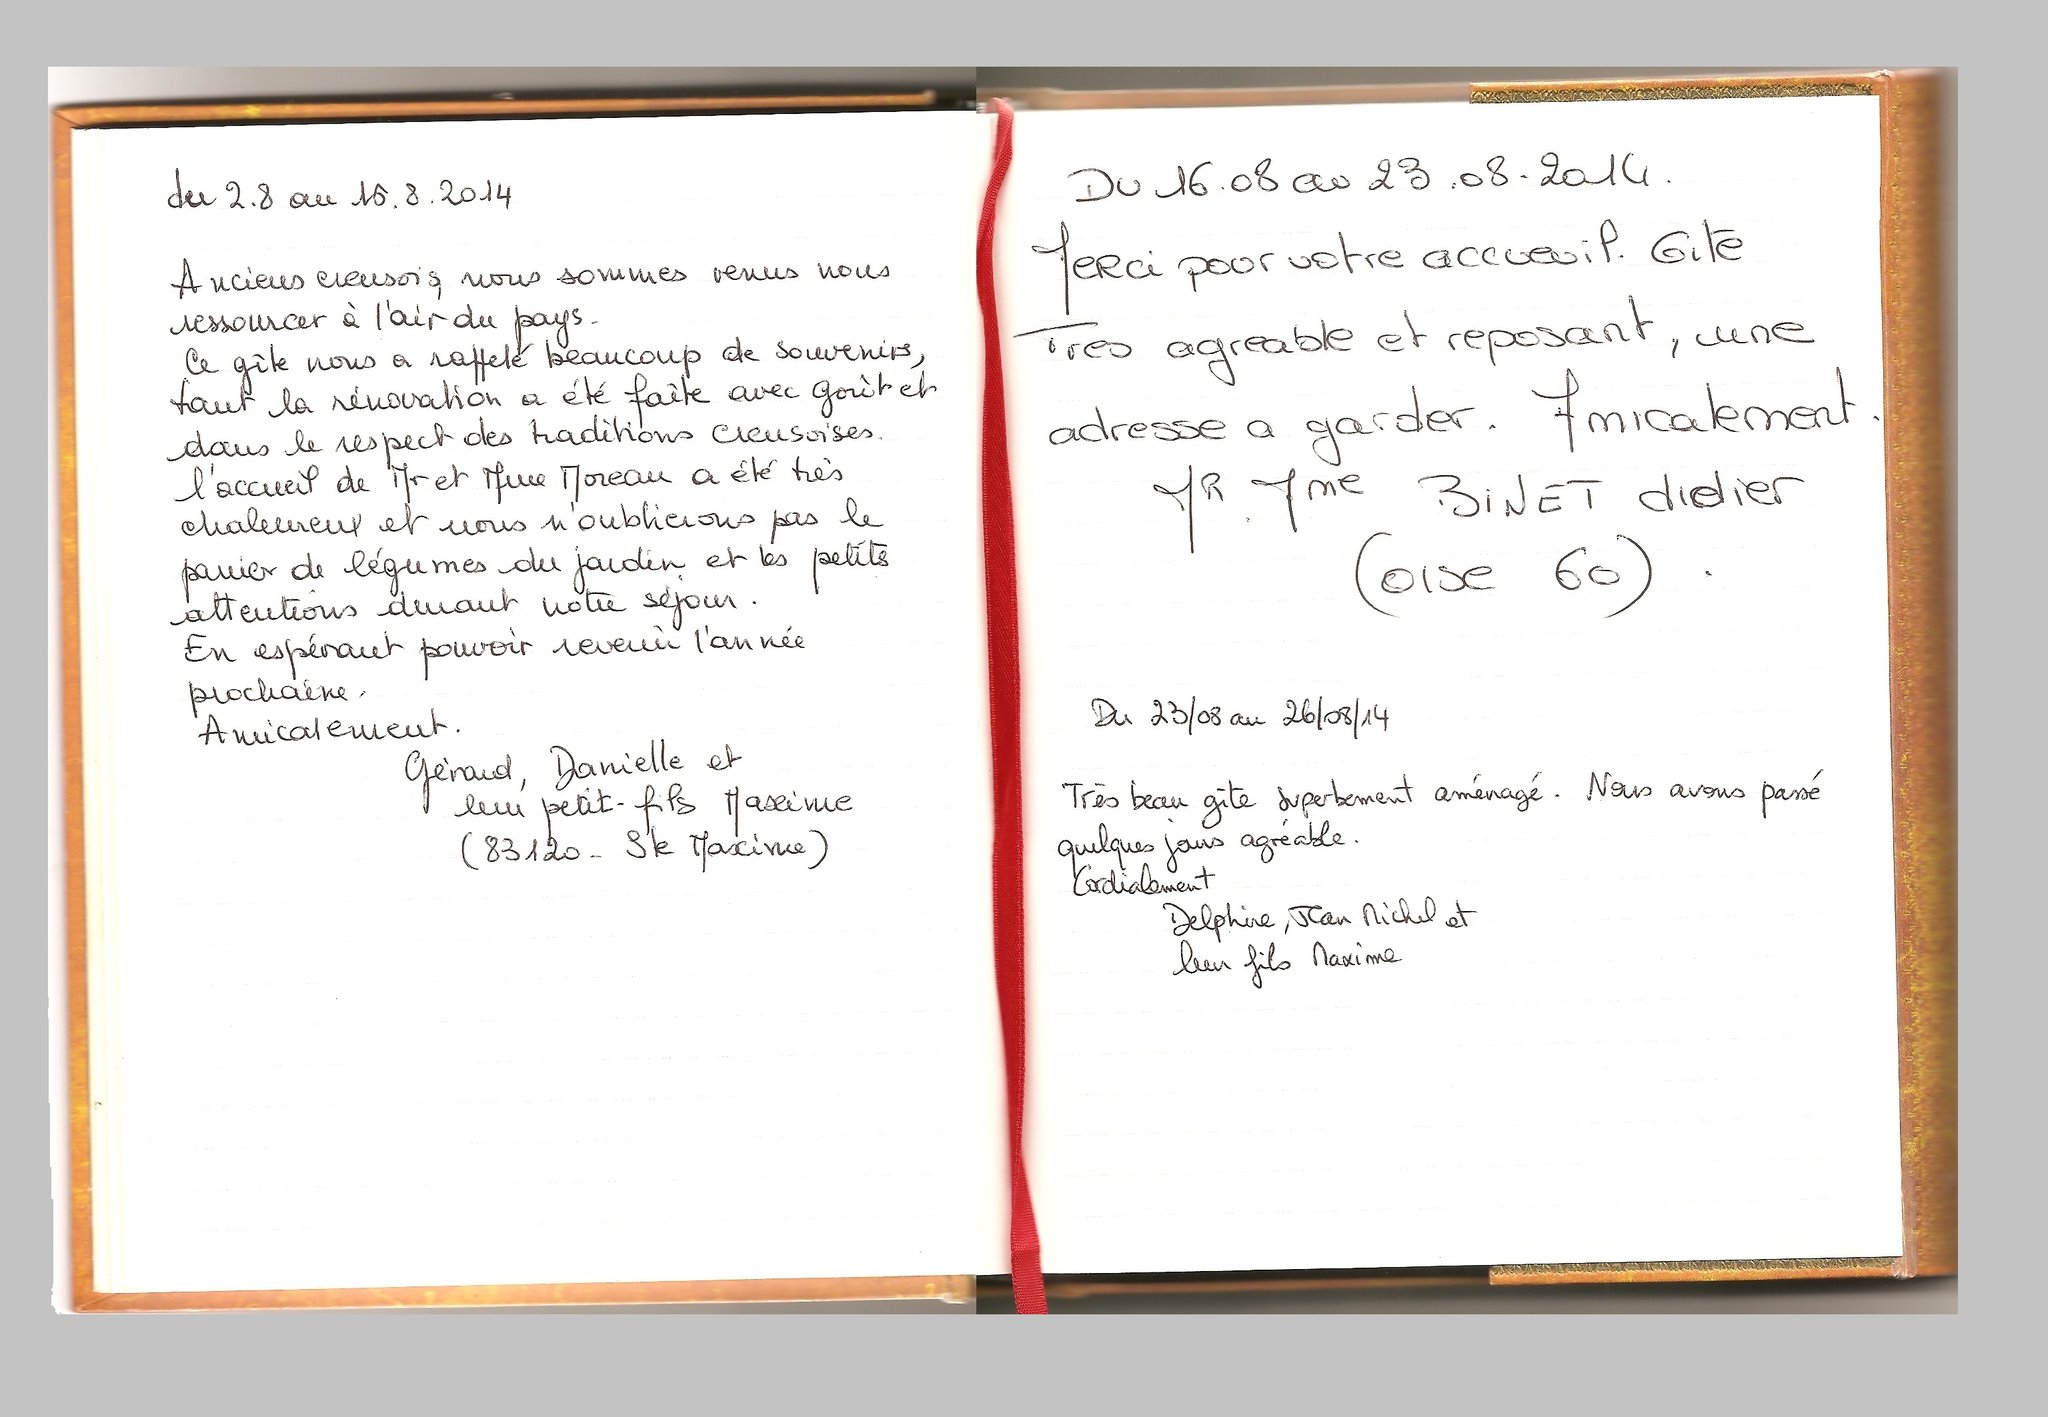 du 2.8 au 16.8.2014
Anciens creusois, nous sommes venus nous
ressourcer à l'air du pays.
Ce gîte nous a rappelé beaucoup de souvenirs,
tant la rénovation a été faite avec goût et
dans le respect des traditions creusoises.
l'accueil de Mr et Mme Moreau a été très
chaleureux et nous n'oublierons pas le
panier de légumes du jardin et les petites
attentions durant notre séjour.
En espérant pouvoir revenir l'année
prochaine.
Amicalement.
Géraud, Danielle et
leur petit-fils Maxime
(83120 - Ste Maxime)
Du 16.08 au 23.08.2014.
Merci pour votre accueuil. Gite
Tres agreable et reposant, une
adresse a garder. Amicalement.
MR. Mme BiNET didier
(oise 60).
Du 23/08 au 26/08/14
Très beau gîte superbement aménagé. Nous avons passé
quelques jours agréable.
Cordialement
Delphine, Jean Michel et
leur fils Maxime